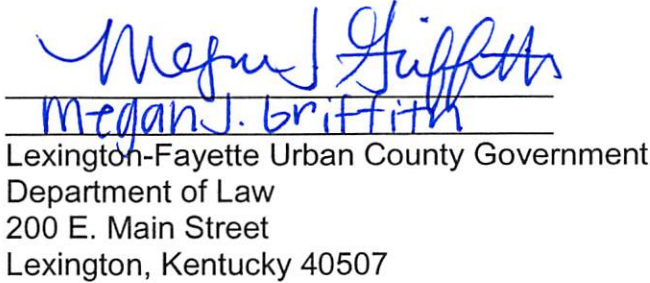 Megan J Griffith
Megan J. Griffith
Lexington-Fayette Urban County Government
Department of Law
200 E. Main Street
Lexington, Kentucky 40507